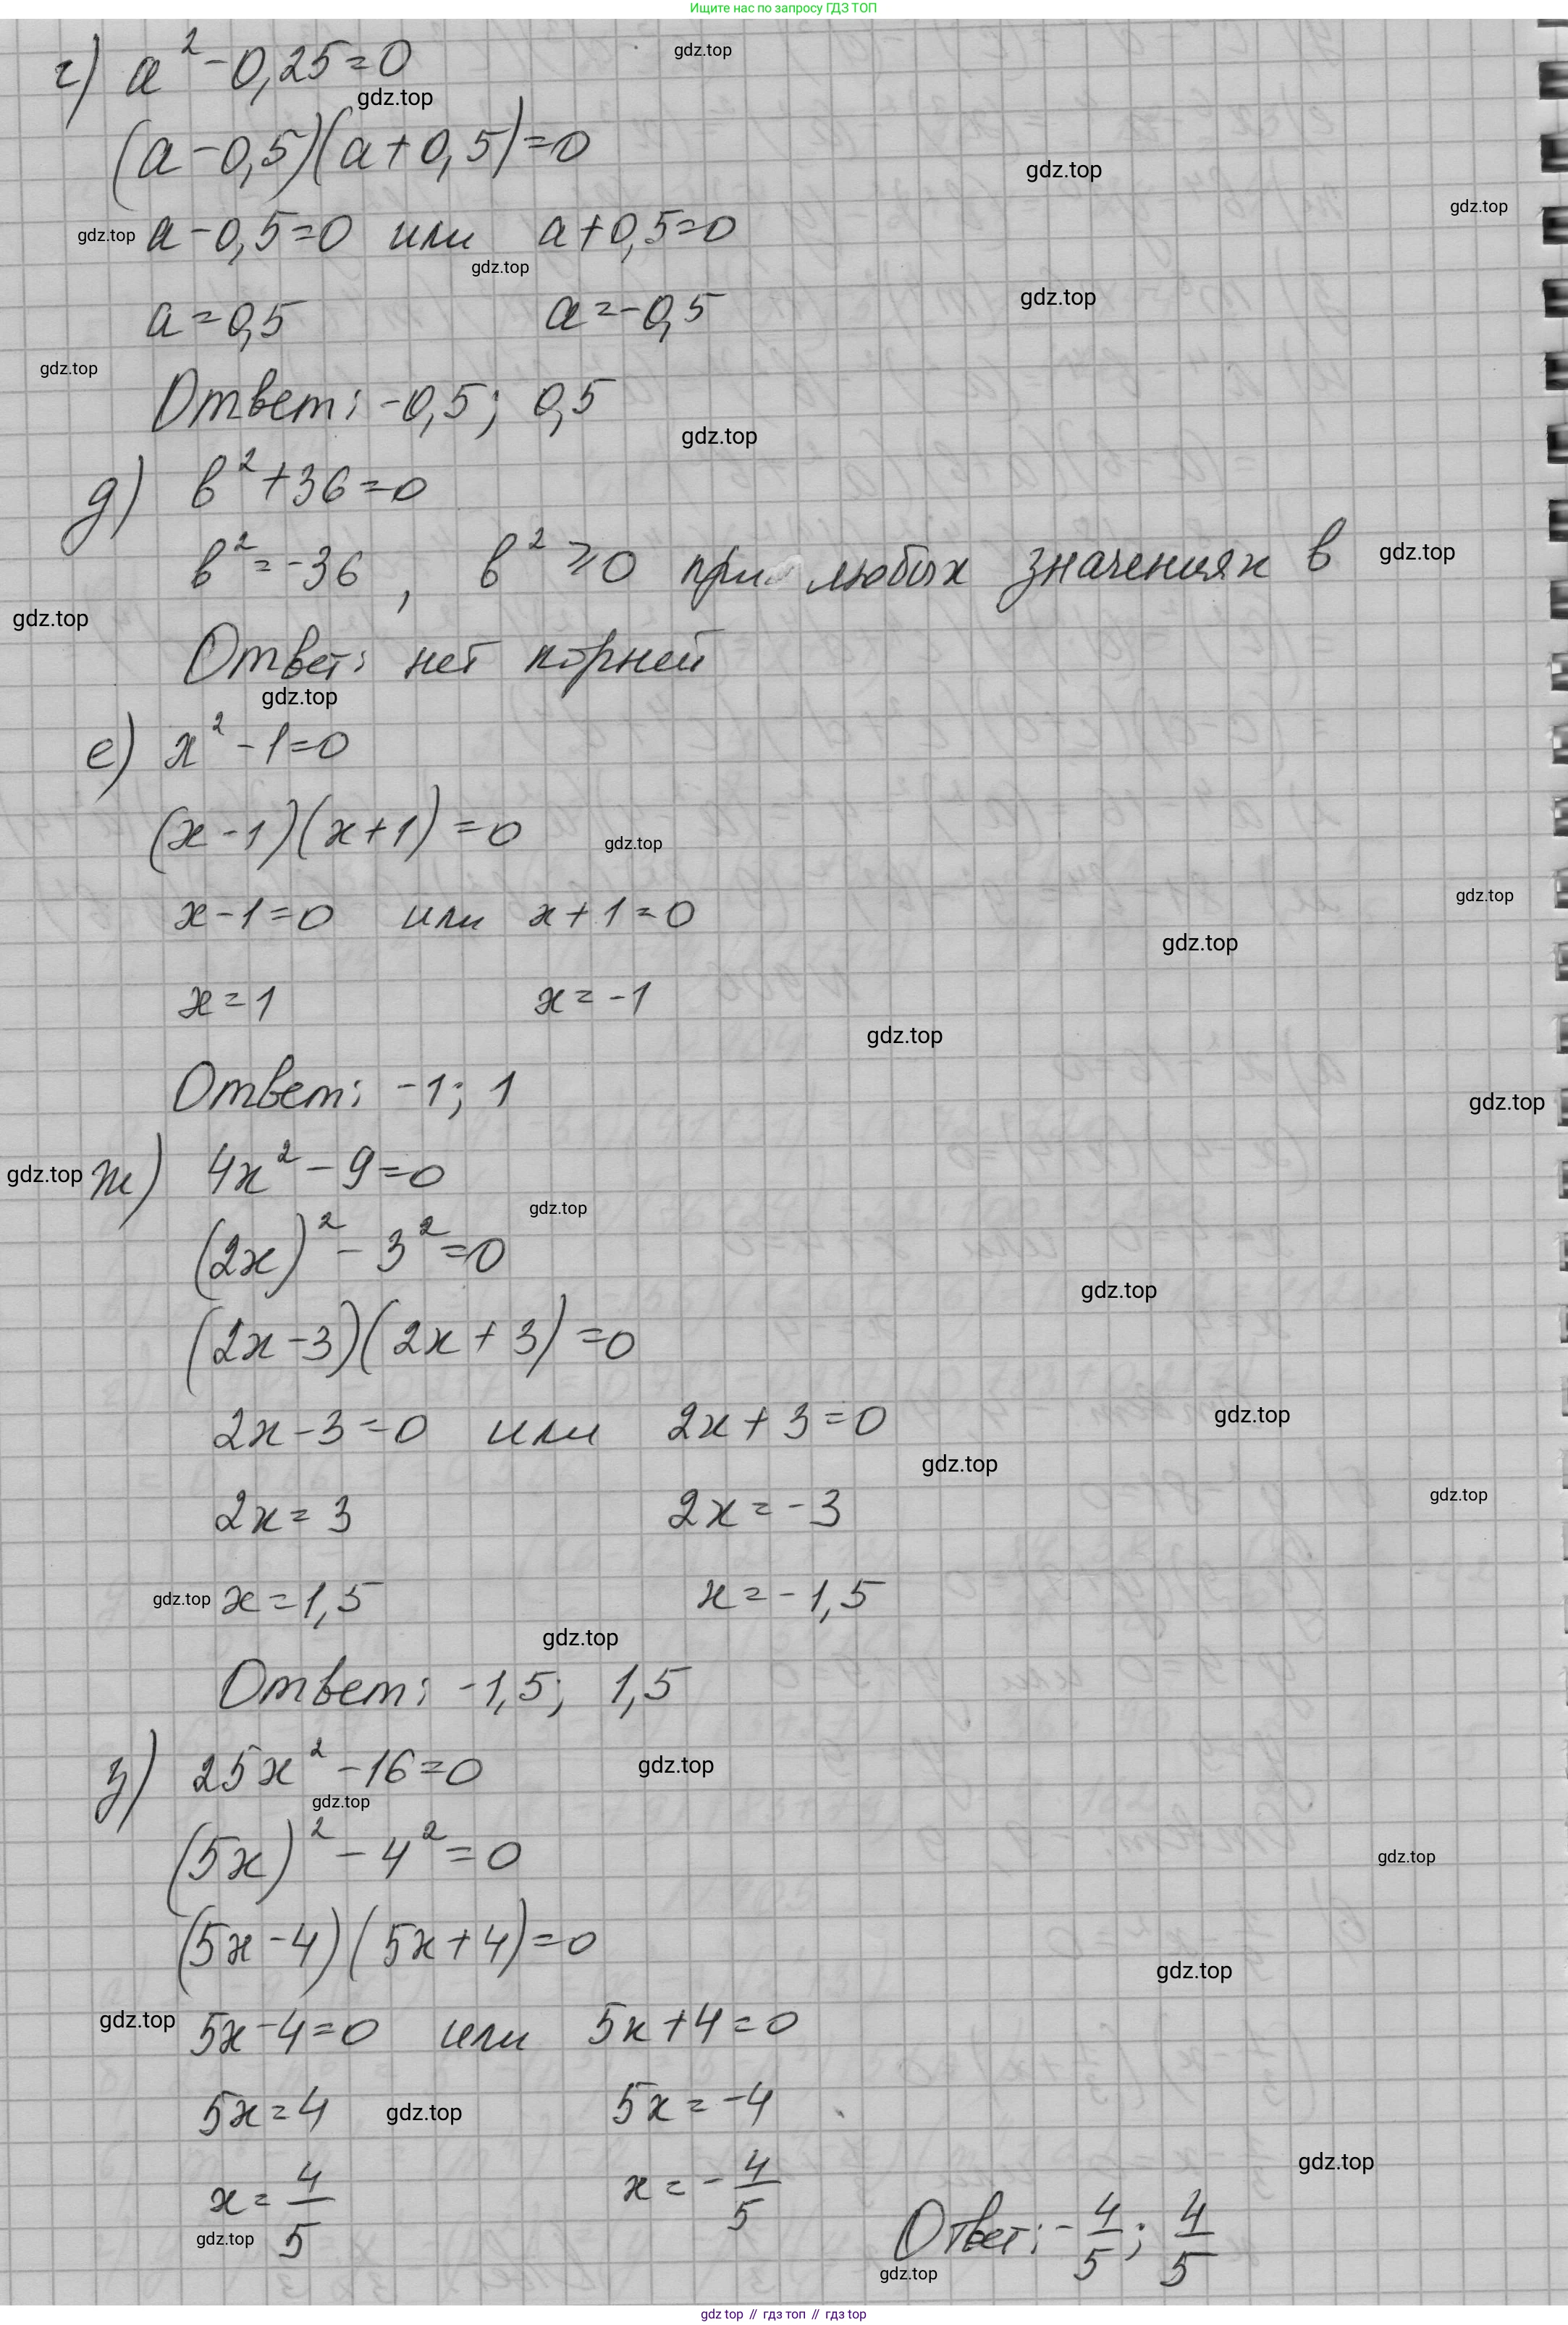 Ищите нас по запросу ГДЗ ТОП
г) a²-0,25=0
(a-0,5)(a+0,5)=0
a-0,5=0 или a+0,5=0
a=0,5 a=-0,5
Ответ: -0,5; 0,5
д) b²+36=0
b²=-36, b²≥0 при любых значениях b
Ответ: нет корней
е) x²-1=0
(x-1)(x+1)=0
x-1=0 или x+1=0
x=1 x=-1
Ответ: -1; 1
ж) 4x²-9=0
(2x)²-3²=0
(2x-3)(2x+3)=0
2x-3=0 или 2x+3=0
2x=3 2x=-3
x=1,5 x=-1,5
Ответ: -1,5; 1,5
з) 25x²-16=0
(5x)²-4²=0
(5x-4)(5x+4)=0
5x-4=0 или 5x+4=0
5x=4 5x=-4
x=4/5 x=-4/5 Ответ: -4/5; 4/5
gdz top // гдз топ // гдз top